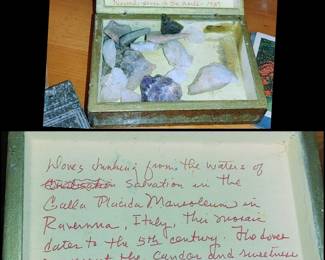 Doves drinking from the waters of
salvation in the
Galla Placida Mausoleum in
Ravenna, Italy, this mosaic
dates to the 5th century. The doves
represent the candor and sweetness